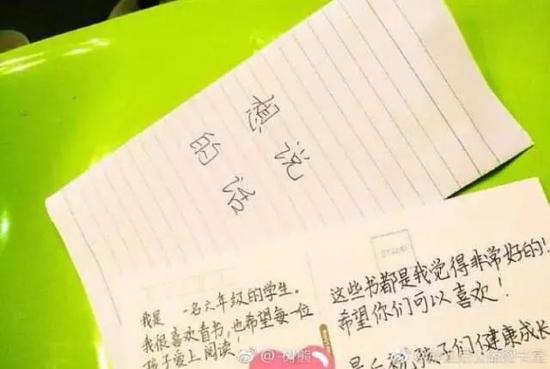 想说
的话
我是 一名六年级的学生。
我很喜欢看书，也希望每一位
孩子爱上阅读！
STAMP
这些书都是我觉得非常好的！
希望你们可以喜欢！
孩子们健康成长